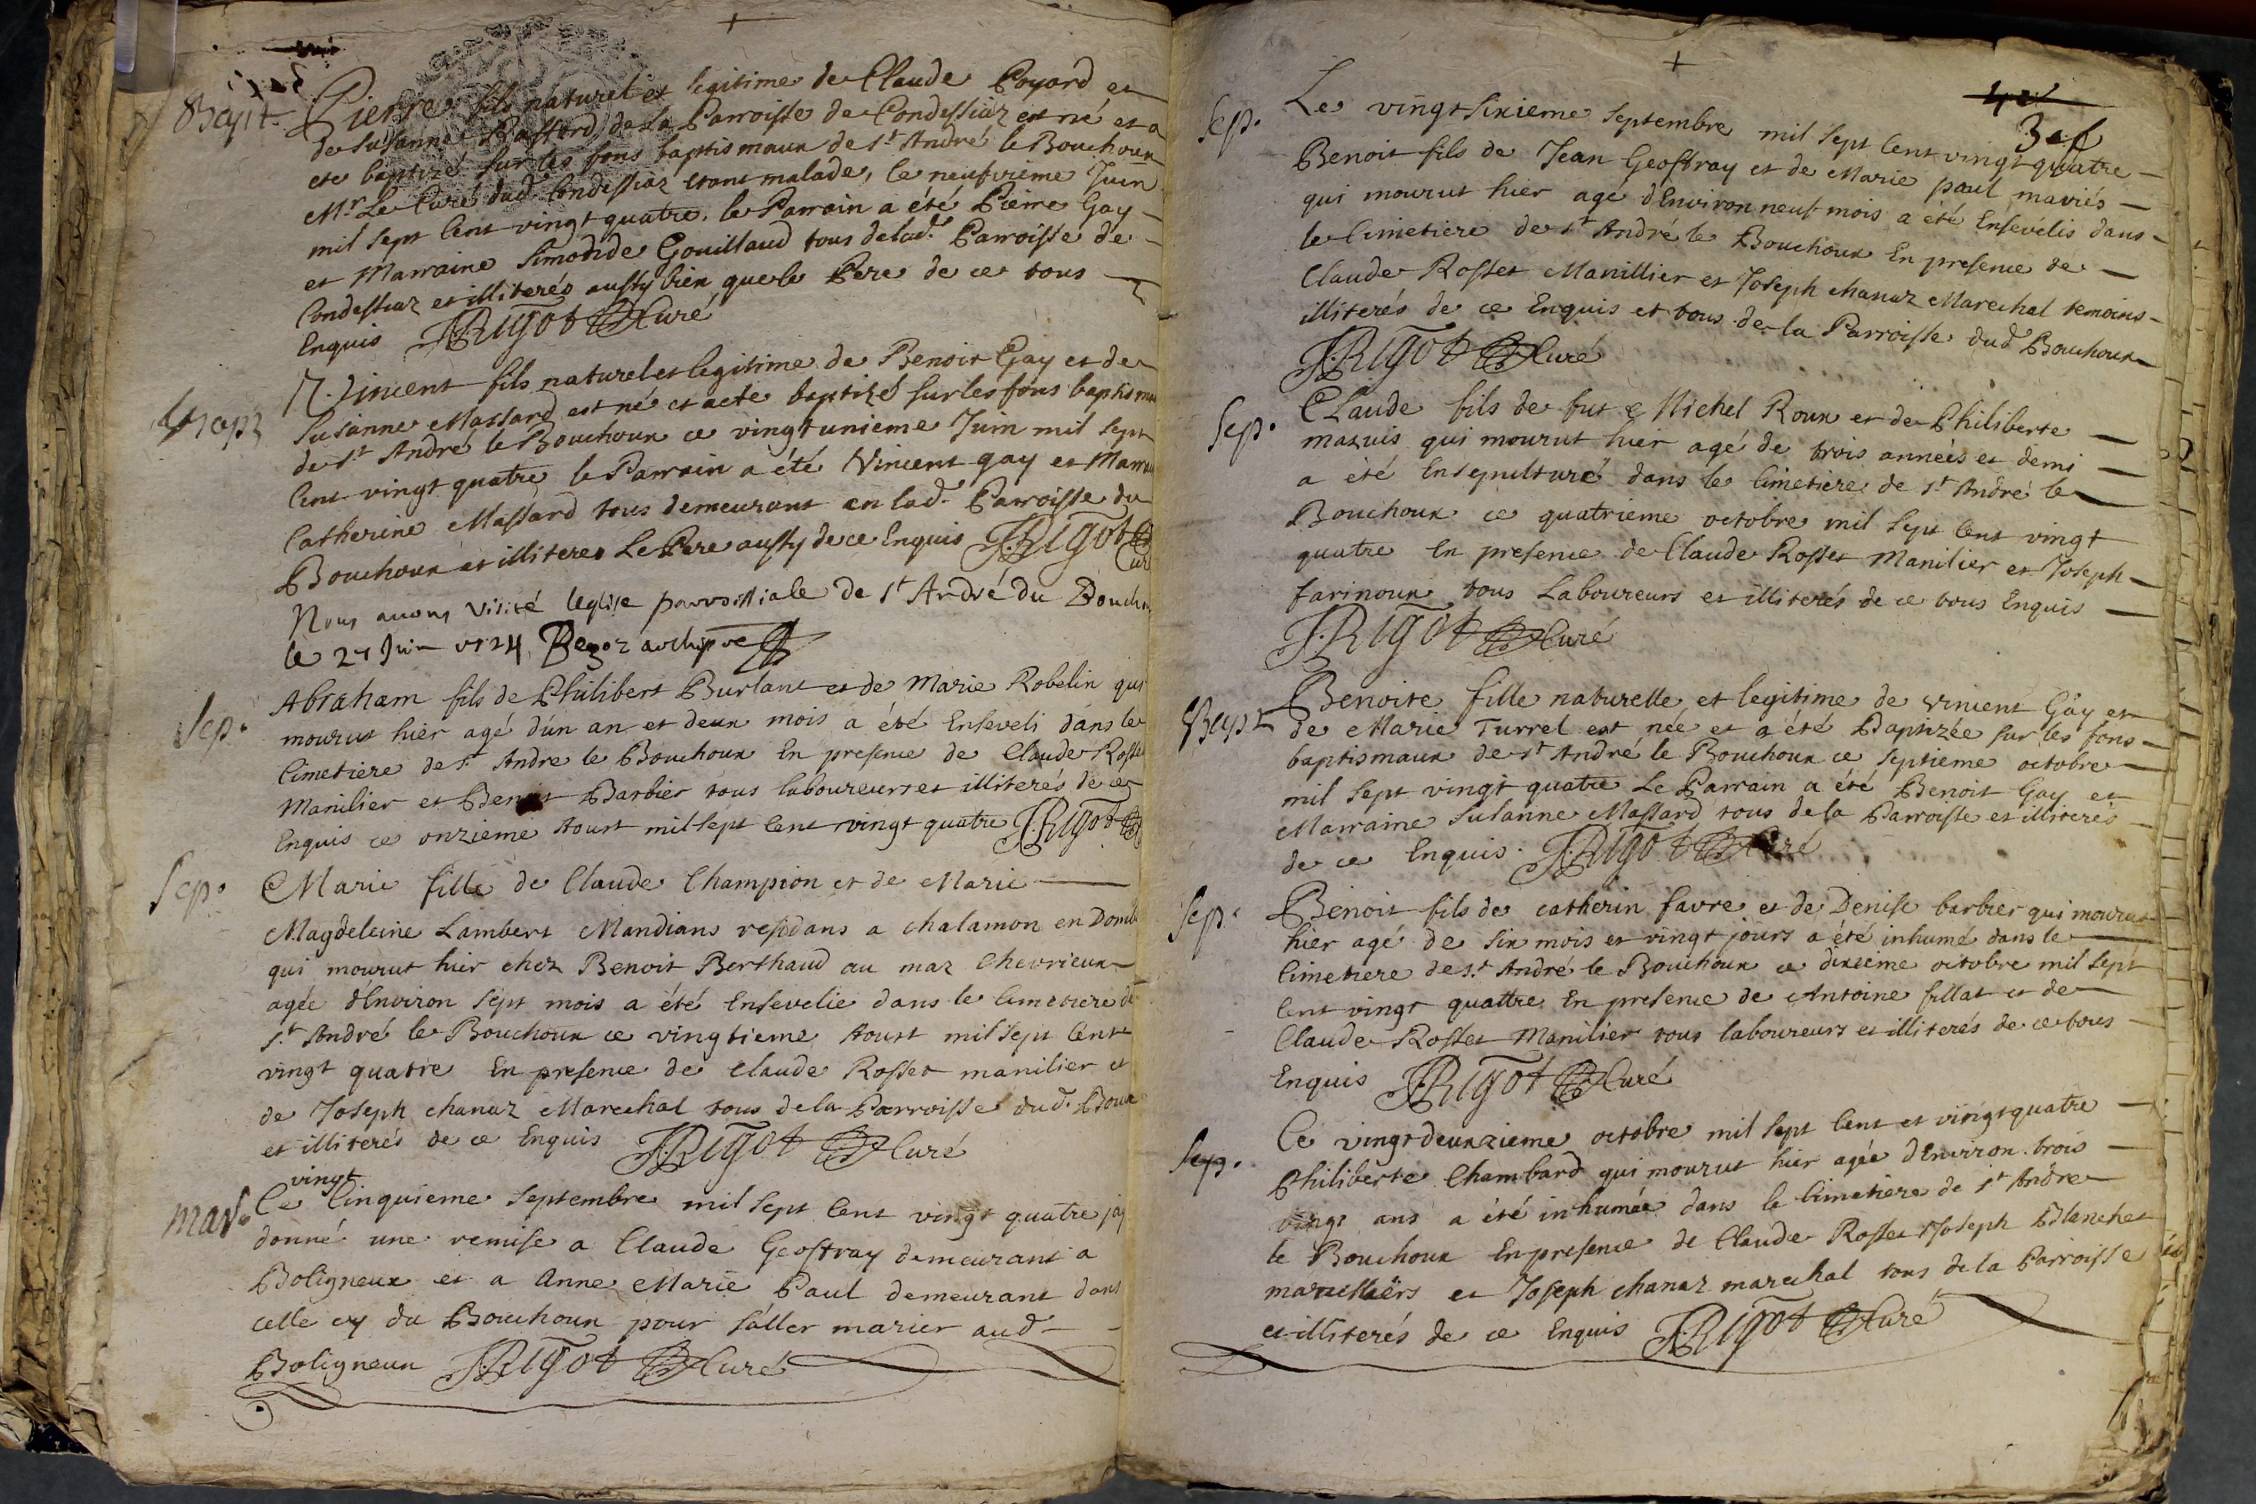 Bapt.
Pierre fils naturel et legitime de Claude Poyard et
de Susanne Bassard de la Parroisse de Condessiaz est né et a
ete baptizé sur les fons baptismaux de St André le Bouchoux
Mr Le Curé dud Condessiaz etant malade, ce neufvieme Juin
mil sept cent vingt quatre. le Parrain a été Pierre Gay
et Marraine Gouillaud tous de lad. Parroisse de
Condessiaz et illiterés aussy bien que le Pere de ce tous
Enquis JRigot Curé
Bapt
Vincent fils naturel et legitime de Benoit Gay et de
Susanne Massard est né et a eté baptizé sur les fons baptismau
de St André le Bouchoux ce vingt unieme Juin mil sept
cent vingt quatre le Parrain a été Vincent gay et Marrai
Catherine Massard tous demeurant en lad. Parroisse du
Bouchoux et illiteres Le Pere aussy de ce Enquis JRigot
Cur
Nous avons visité leglise parrossiale de St André du Bouch
le 27 Juin 1724 archiptre
Sep.
Abraham fils de Philibert Burlant et de Marie Robelin qui
mourut hier agé d'un an et deux mois a été Enseveli dans le
Cimetiere de St Andre le Bouchoux En presence de Claude Rosse
Manilier et Benoit Barbier tous laboureurs et illiterés de ce
Enquis ce onzieme Aoust mil sept cent vingt quatre JRigot
Sep.
Marie fille de Claude Champion et de Marie
Magdeleine Lambert Mandians residans a chalamon en Domb
qui mourut hier chez Benoit Berthaud au maz Chevrieux
agée d'Environ sept mois a été Ensevelie dans le Cimetiere de
St André le Bouchoux ce vingtieme Aoust mil sept cent
vingt quatre En presence de Claude Rosset manilier et
de Joseph chanaz Marechal tous de la Parroisse dud. Bou
et illiterés de ce Enquis JRigot Curé
vingt
Mar.
Ce Cinquieme Septembre mil sept cent vingt quatre jai
donné une remise a Claude Geoffray demeurant a
Boligneux et a Anne Marie Paul demeurant dans
celle cy du Bouchoux pour s'aller marier aud
Boligneux JRigot Curé
3e f
Sep.
Le vingt sixieme Septembre mil sept cent vingt quatre
Benoit fils de Jean Geoffray et de Marie paul mariés
qui mourut hier agé d'Environ neuf mois a été Ensevelis dans
le Cimetiere de St André le Bouchoux En presence de
Claude Rosset Manillier et Joseph chanaz Marechal temoins
illiterés de ce Enquis et tous de la Parroisse dud Bouchoux
JRigot Curé
Sep.
Claude fils de fut Michel Roux et de Philiberte
mazuis qui mourut hier agé de trois années et demi
a été Ensepulturé dans le Cimetiere de St André le
Bouchoux ce quatrieme octobre mil sept cent vingt
quatre En presence de Claude Rosset Manilier et Joseph
farinoux tous Laboureurs et illiterés de ce tous Enquis
JRigot Curé
Bapt
Benoite fille naturelle et legitime de vincent Gay et
de Marie Turrel est née et a été Baptizée sur les fons
baptismaux de St André le Bouchoux ce septieme octobre
mil sept vingt quatre Le Parrain a été Benoit Gay et
Marraine Susanne Massard tous de la Parroisse et illiterés
de ce Enquis. JRigot Curé
Sep.
Benoit fils de catherin favre et de Denise barbier qui mourut
hier agé de six mois et vingt jours a été inhumé dans le
Cimetiere de St André le Bouchoux ce dixieme octobre mil sept
cent vingt quattre En presence de Antoine fillat et de
Claude Rosset Manilier tous laboureurs et illiterés de ce tous
Enquis JRigot Curé
Sep.
Ce vingt deuxzieme octobre mil sept cent et vingt quatre
Philiberte Chambard qui mourut hier agée d'Environ trois
vingt ans a été inhumée dans le Cimetiere de St Andre
le Bouchoux En presence de Claude Rosset Joseph Blanchet
et Joseph chanaz marechal tous de la Parroisse
et illiterés de ce Enquis JRigot Curé